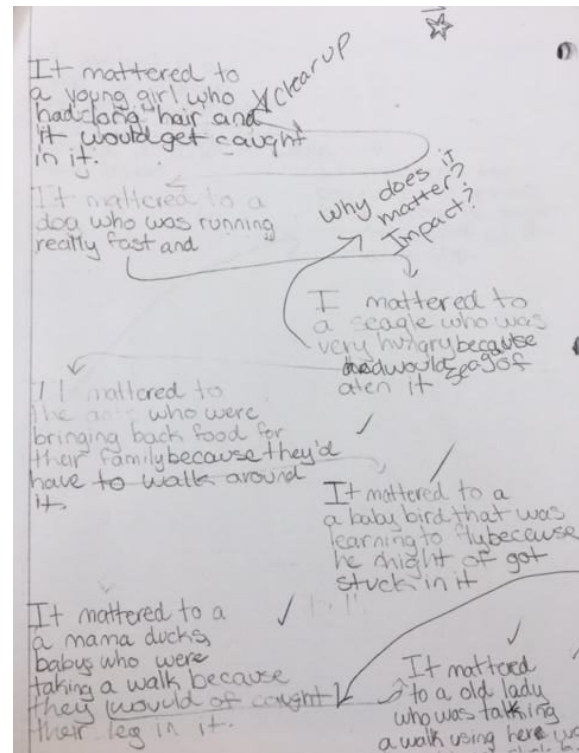 It mattered to
a young girl who
had long hair and
it would get caught
in it.
clear up
It mattered to a
dog who was running
really fast and
why does it
matter?
Impact?
I mattered to
a seagle who was
very hungry because
would
aten it
mattered to
the who were
bringing back food for
their family because they'd
have to walk around
it.
It mattered to a
a baby bird that was
learning to fly because
he might of got
stuck in it
It mattered to a
a mama ducks,
babys who were
taking a walk because
they would of caught
their leg in it.
It mattered
to a old lady
who was
a walk using her